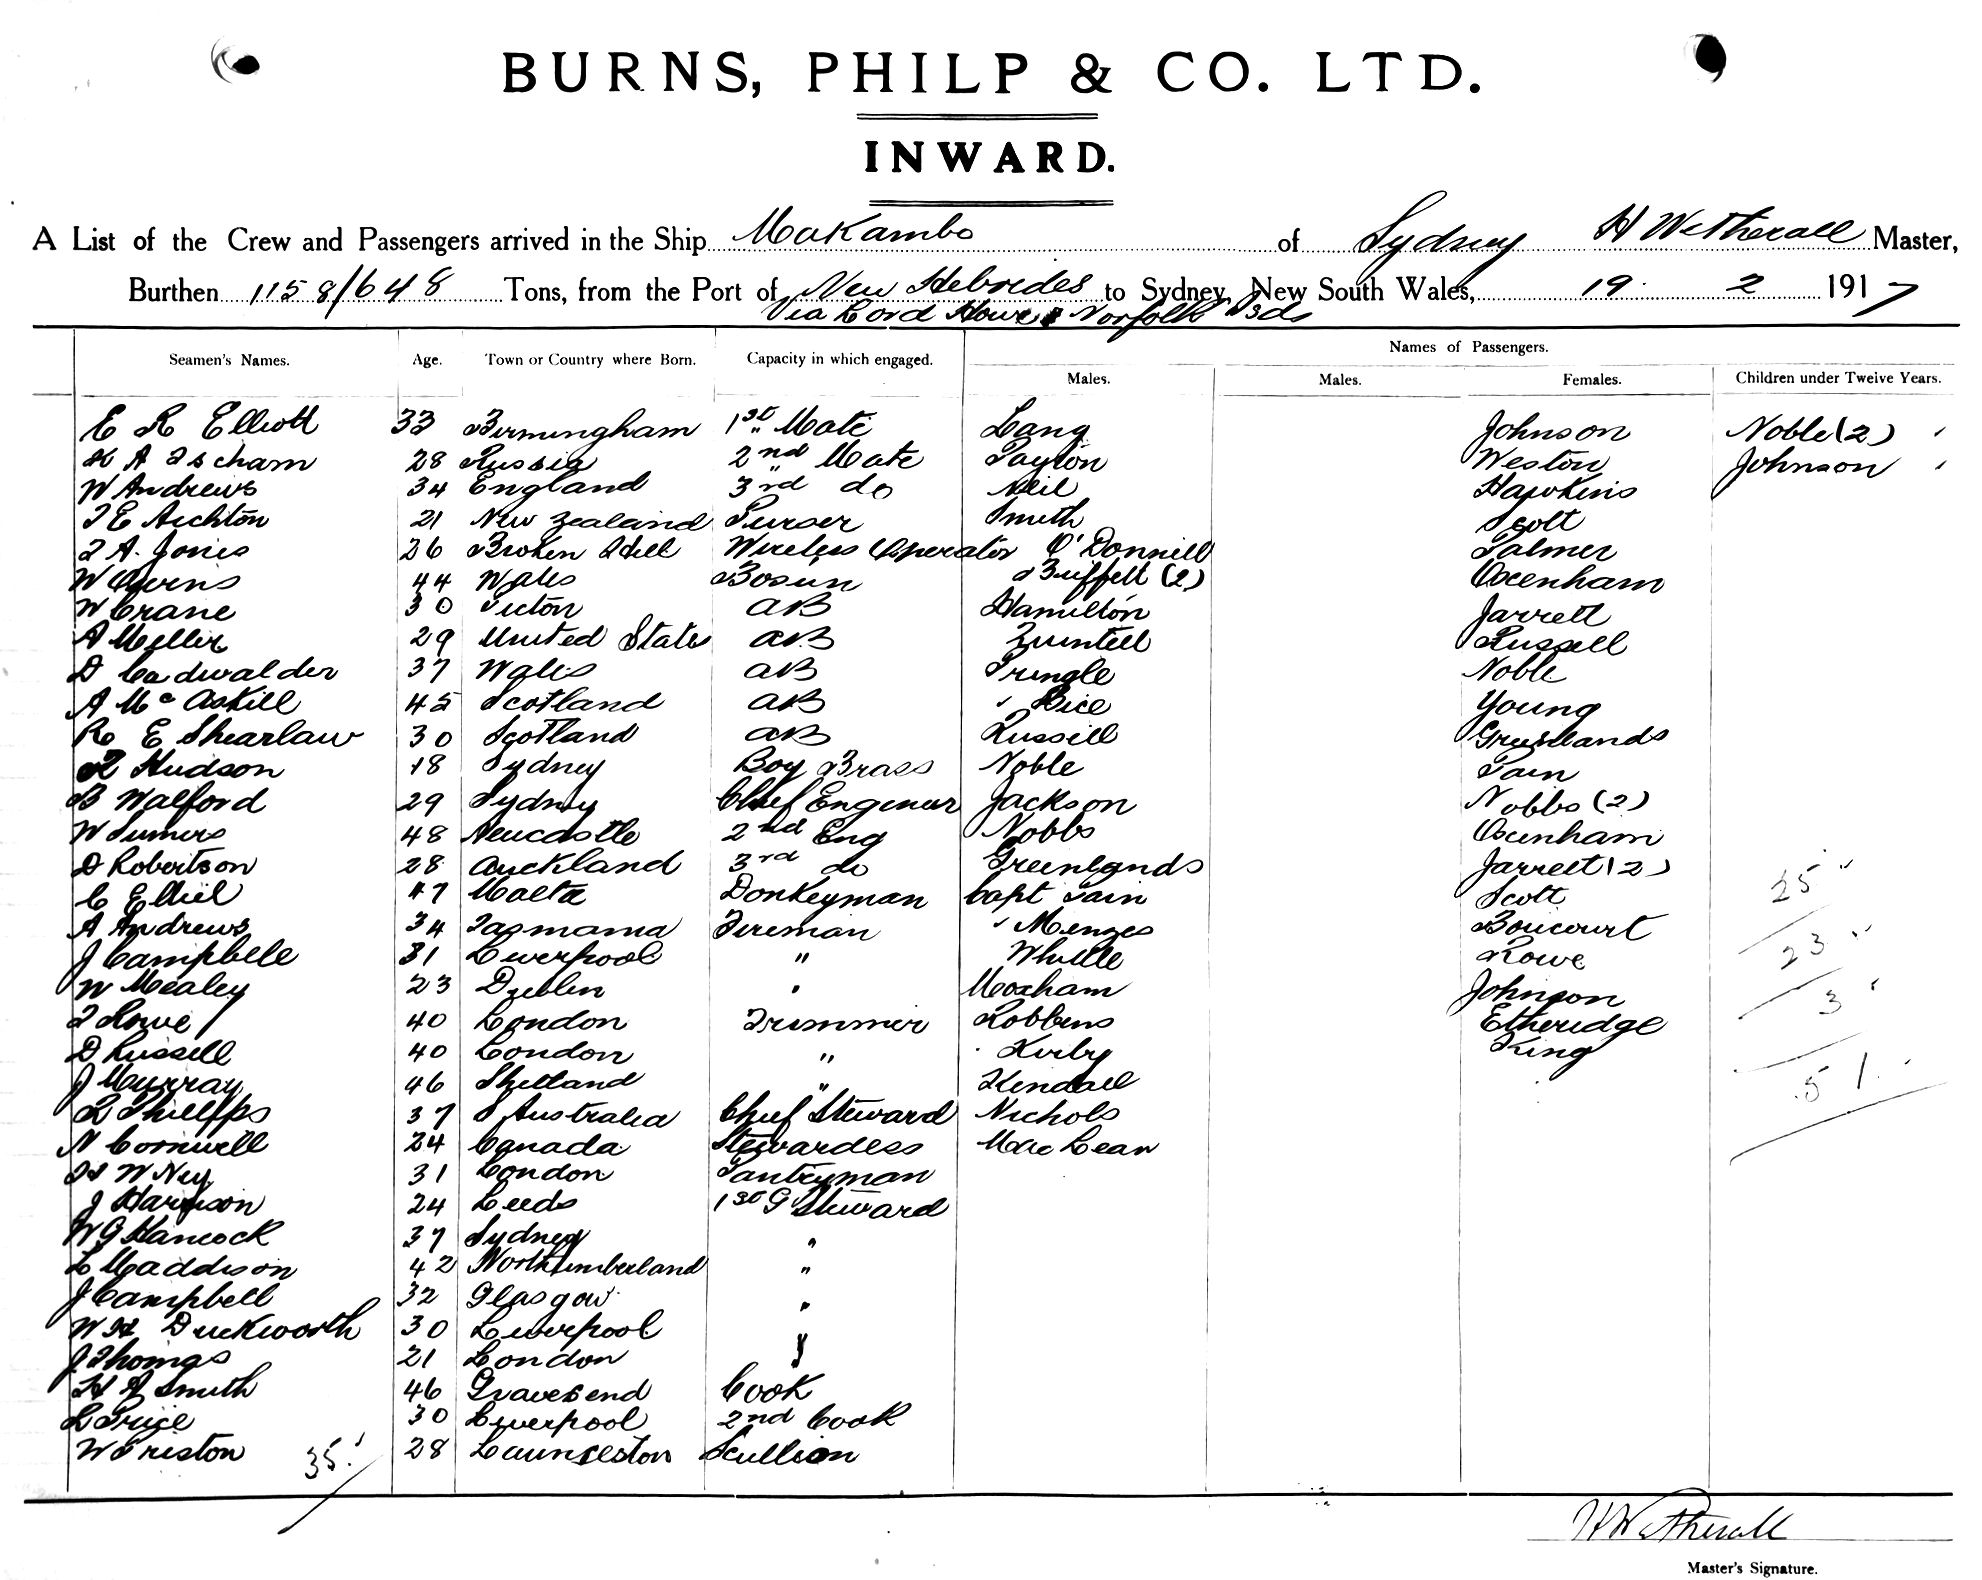 BURNS, PHILP & CO. LTD.
INWARD.
A List of the Crew and Passengers arrived in the Ship Makambo of Sydney H Wetherall Master,
Burthen 1158/648 Tons, from the Port of New Hebrides to Sydney, New South Wales, 19 2 1917
Via Lord Howe & Norfolk Isds
Names of Passengers.
Seamen's Names. Age. Town or Country where Born. Capacity in which engaged. Males. Males. Females. Children under Twelve Years.
E R Elliott 33 Birmingham 1st Mate Lang Johnson Noble (2)
H A Ischam 28 Russia 2nd Mate Payton Weston Johnson
W Andrews 34 England 3rd do Neil Hawkins
T E Aichton 21 New Zealand Purser Smith Scott
T A. Jones 26 Broken Hill Wireless Operator O'Donnell Palmer
W Owens 44 Wales Bosun Buffett (2) Oxenham
W Crane 30 Picton AB Hamilton Jarrett
A Miller 29 United States AB Quintell Russell
D Cadwalader 37 Wales AB Pringle Noble
A McAskill 45 Scotland AB Rice Young
R E Shearlaw 30 Scotland AB Russell Greenlands
R Hudson 18 Sydney Boy Brass Noble Pain
B Walford 29 Sydney Chief Engineer Jackson Nobbs (2)
W Sumers 48 Newcastle 2nd Eng Nobbs Oxenham
D Robertson 28 Auckland 3rd do Greenlands Jarrett (2)
C Elliel 47 Malta Donkeyman Capt Pain Scott 25
A Andrews 34 Tasmania Fireman Menges Boucourt
J Campbell 31 Liverpool " Whittle Rowe 23
W Mealey 23 Dublin " Moxham Johnson 3
T Rowe 40 London Trimmer Robbins Etheridge
D Russell 40 London " Kirby King
J Murray 46 Shetland " Kendall 51
R Phillips 37 S Australia Chief Steward Nichols
N Cornwell 24 Canada Stewardess MacLean
H W Ney 31 London Pantryman
J Harrison 24 Leeds 1st G Steward
W G Hancock 37 Sydney "
L Maddison 42 Northumberland "
J Campbell 32 Glasgow "
W H Duckworth 30 Liverpool
J Thomas 21 London
H A Smith 46 Gravesend Cook
L Price 30 Liverpool 2nd Cook
W Friston 35 28 Launceston Scullion
H Wetherall
Master's Signature.